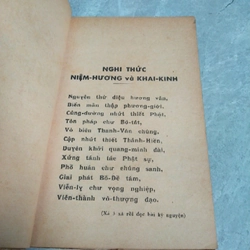 NGHI THỨC
NIỆM-HƯƠNG và KHAI-KINH
Nguyện thử diệu hương vân,
Biến mãn thập phương-giới.
Cúng-dường nhứt thiết Phật,
Tôn pháp chư Bồ-tát,
Vô biên Thanh-Văn chúng,
Cập nhứt thiết Thánh-Hiền.
Duyên khởi quang-minh đài,
Xứng tánh tác Phật sự,
Phổ huân chư chúng sanh,
Giai phát Bồ-Đề tâm,
Viễn-ly chư vọng nghiệp,
Viên-thành vô-thượng đạo.
(Xá 3 xá rồi đọc bài kỳ nguyện)